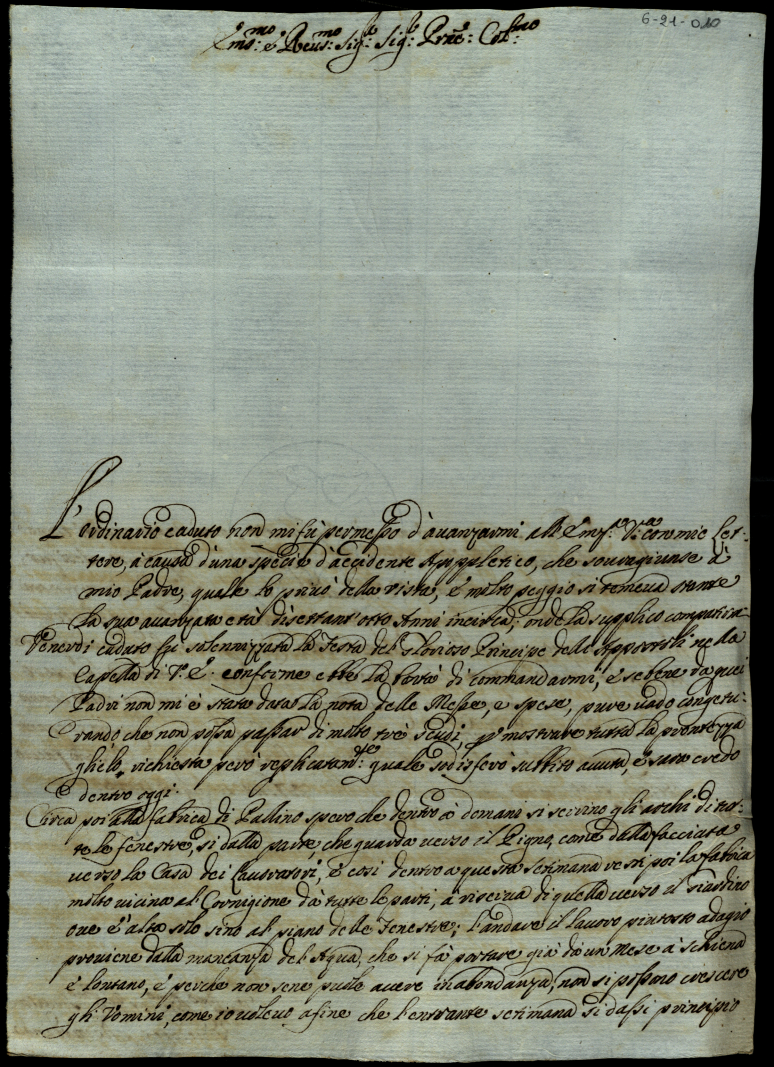 6-21-010
Em̃o: e Reu̅mo: Sig.r Sig.r Prñe: Col.mo
L'ordinario caduto non mi fù permesso d'auanzarmi all'Emz.a V.ra con mie Let-
tere, à causa d'una specie d'accidente Appopletico, che souragiunse à
mio Padre, quale lo priuò della vista, e molto peggio si temeua stante
la sua auanzata età di settant'otto Anni incirca; onde la supplico compatirmi
Venerdì caduto fù solennizzata la Festa del Glorioso Principe delli Appostoli nella
Capella di V.E. conforme ebbe la bontà di commandarmi, e se bene da quei
Padri non mi è stata data la nota delle Messe, e spese, pure uado congetu-
rando che non possa passar di molto trè Scudi, p mostrare tutta la prontezza
gliele richiesta però replicatam.te quale sodisferò subbito auuta, e sarà credo
dentro oggi.
Circa poi alla fabrica di Pallino spero che dentro à domani si serrino gli archi di tut-
te le fenestre, si dalla parte, che guarda uerso il Pigno, come dalla facciata
uerso la Casa dei Lauoratori, e così dentro a questa settimana resti poi la fabrica
molto vicina al Cornigione da tutte le parti, a riserua di quella uerso il Giardino
oue è alta solo sino al piano delle Fenestre; l'andare il lauoro piutosto adagio
prouiene dalla mancanza del Aqua, che si fà portare già dà un Mese à schiena
è lontano, è perche non se ne puole auere in abondanza, non si possono crescere
gli Vomini, come io uoleuo afine che l'entrante settimana si dassi principio